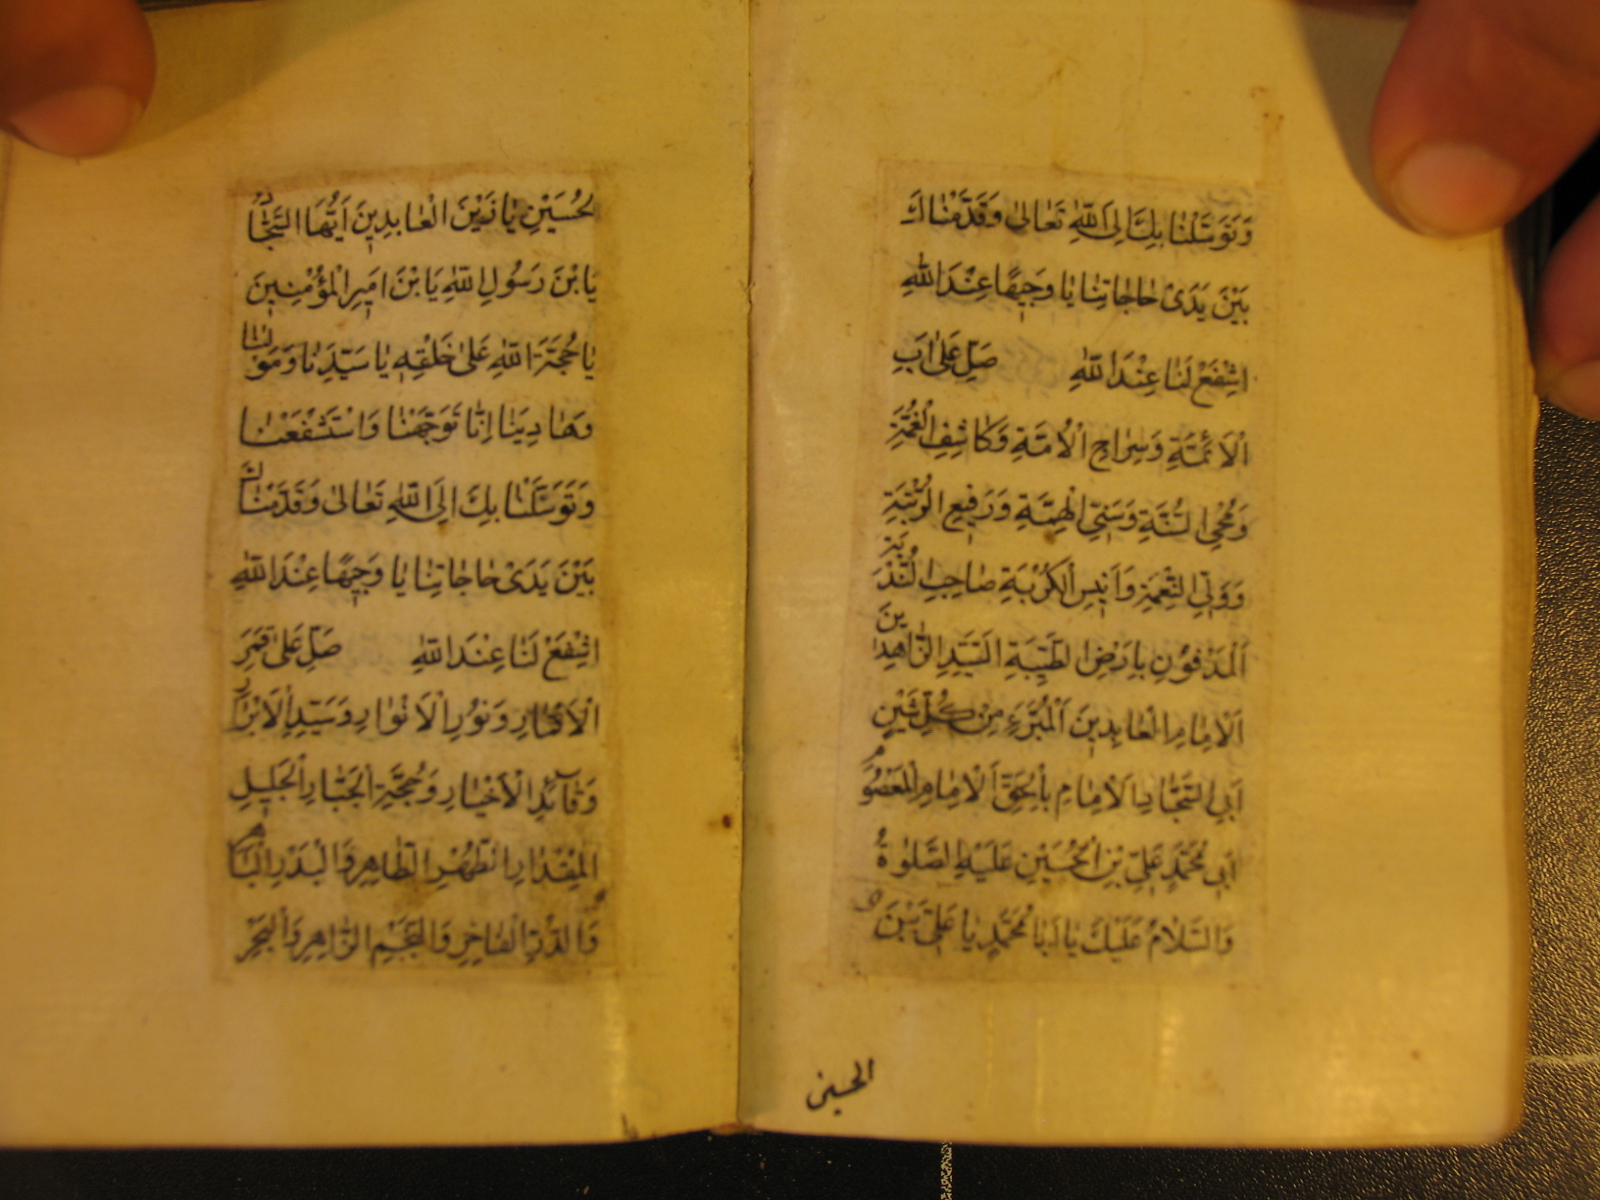 وَتَوَسَّلْنٰا بِكَ اِلَى اللّٰهِ تَعٰالىٰ وَقَدَّمْنٰاكَ
بَيْنَ يَدَىْ حٰاجٰاتِنٰا يٰا وَجِيهًا عِنْدَ اللّٰهِ
اِشْفَعْ لَنٰا عِنْدَ اللّٰهِ صَلِّ عَلىٰ اَبِ
الْاَئِمَّةِ وَسِرٰاجِ الْاُمَّةِ وَكٰاشِفِ الْغُمَّةِ
وَمُحْىِ السُّنَّةِ وَسَنِىِّ الْهِمَّةِ وَرَفِيعِ الرُّتْبَةِ
وَوَلِىِّ النِّعْمَةِ وَاَنِيسِ الْكُرْبَةِ صٰاحِبِ النُّدْبَةِ
اَلْمَدْفُونِ بِاَرْضِ الطَّيِّبَةِ السَّيِّدِ الزّٰاهِدِينَ
اَلْاِمٰامِ الْعٰابِدِينَ اَلْمُبَرَّءِ مِنْ كُلِّ شَيْنٍ
اَبِى السَّجّٰادِ اَلْاِمٰامِ بِالْحَقِّ اَلْاِمٰامِ الْمَعْصُومِ
اَبِى مُحَمَّدٍ عَلِىِّ بْنِ الْحُسَيْنِ عَلَيْهِ الصَّلٰوةُ
وَالسَّلٰامُ عَلَيْكَ يٰا اَبٰا مُحَمَّدٍ يٰا عَلِىَّ بْنَ
الحسين
الْحُسَيْنِ يٰا زَيْنَ الْعٰابِدِينَ اَيُّهَا السَّجّٰادُ
يَابْنَ رَسُولِ اللّٰهِ يَابْنَ اَمِيرِ الْمُؤْمِنِينَ
يٰا حُجَّةَ اللّٰهِ عَلىٰ خَلْقِهِ يٰا سَيِّدَنٰا وَمَوْلٰنٰا
وَهٰادِيَنٰا اِنّٰا تَوَجَّهْنٰا وَاسْتَشْفَعْنٰا
وَتَوَسَّلْنٰا بِكَ اِلَى اللّٰهِ تَعٰالىٰ وَقَدَّمْنٰاكَ
بَيْنَ يَدَىْ حٰاجٰاتِنٰا يٰا وَجِيهًا عِنْدَ اللّٰهِ
اِشْفَعْ لَنٰا عِنْدَ اللّٰهِ صَلِّ عَلىٰ قَمَرِ
الْاَقْمٰارِ وَنُورِ الْاَنْوٰارِ وَسَيِّدِ الْاَبْرٰارِ
وَقٰآئِدِ الْاَخْيٰارِ وَحُجَّةِ الْجَبّٰارِ الْجَلِيلِ
الْمِقْدٰارِ الطُّهْرِ الطّٰاهِرِ وَالْبَدْرِ الْبٰاهِرِ
وَالدُّرِّ الْفٰاخِرِ وَالنَّجْمِ الزّٰاهِرِ وَالْبَحْرِ